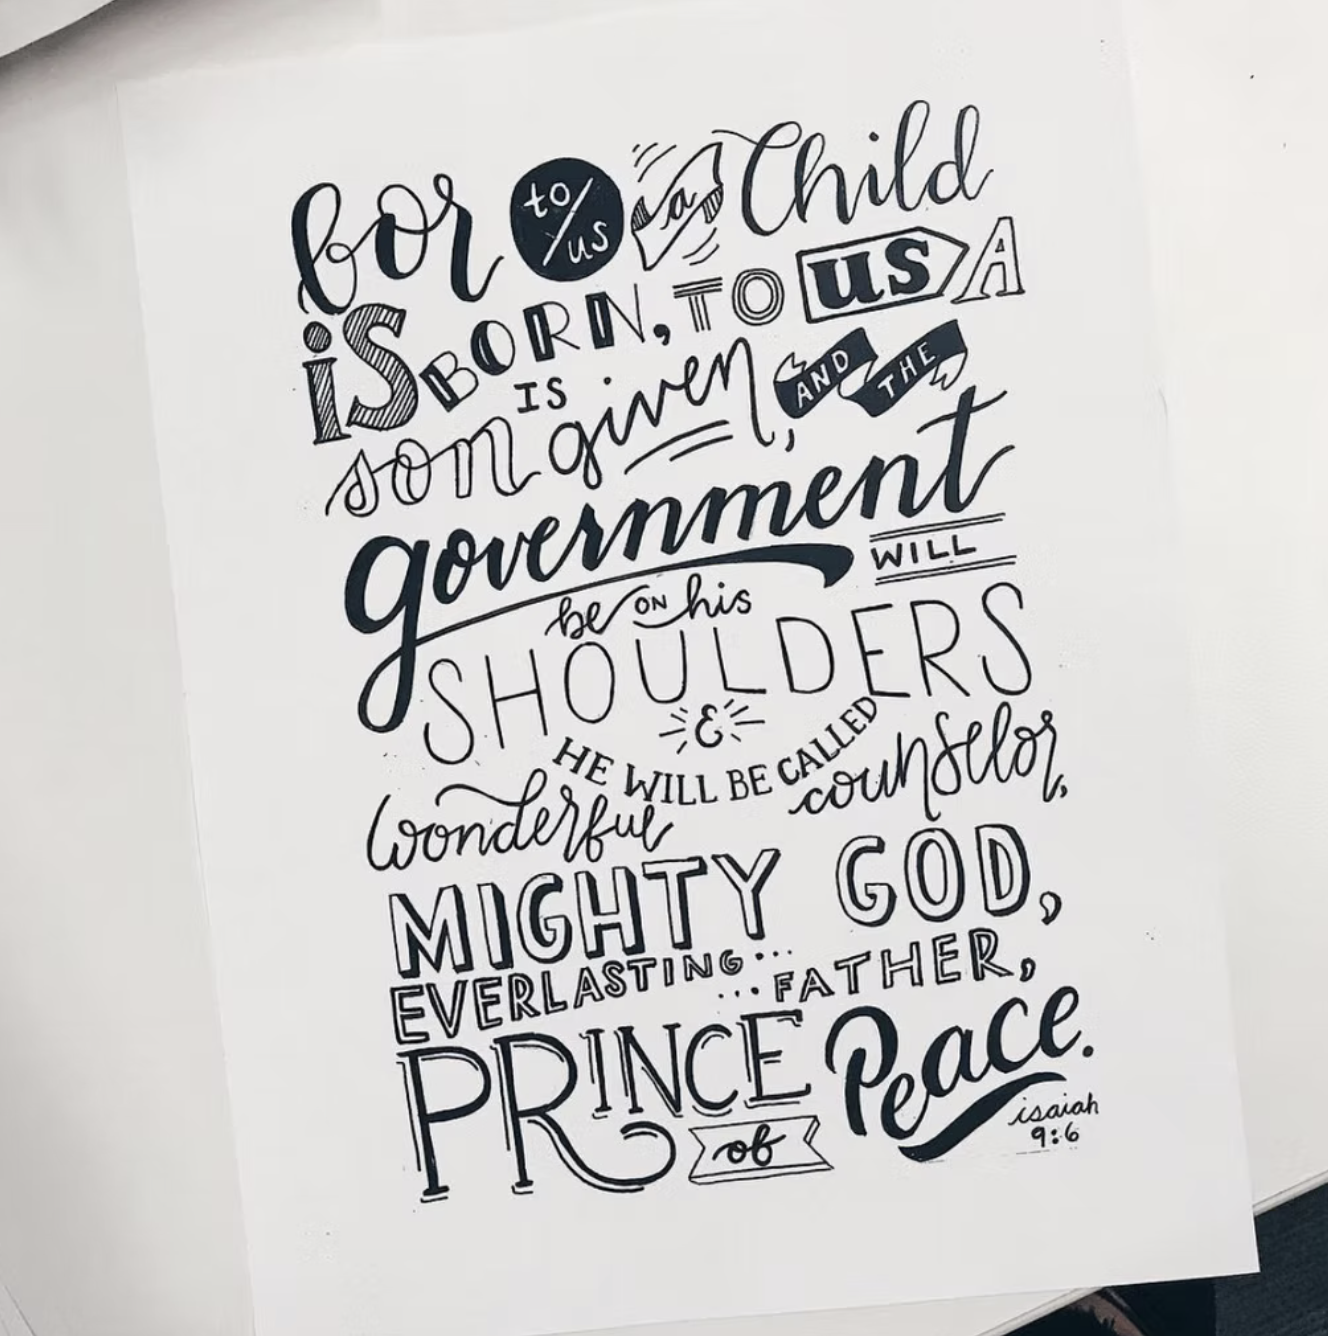 for to/us a Child
is BORN, TO us A
son IS given, AND THE
government WILL
be ON his
SHOULDERS
&
HE WILL BE CALLED
wonderful counselor,
MIGHTY GOD,
EVERLASTING... ...FATHER,
PRINCE of Peace.
isaiah
9:6